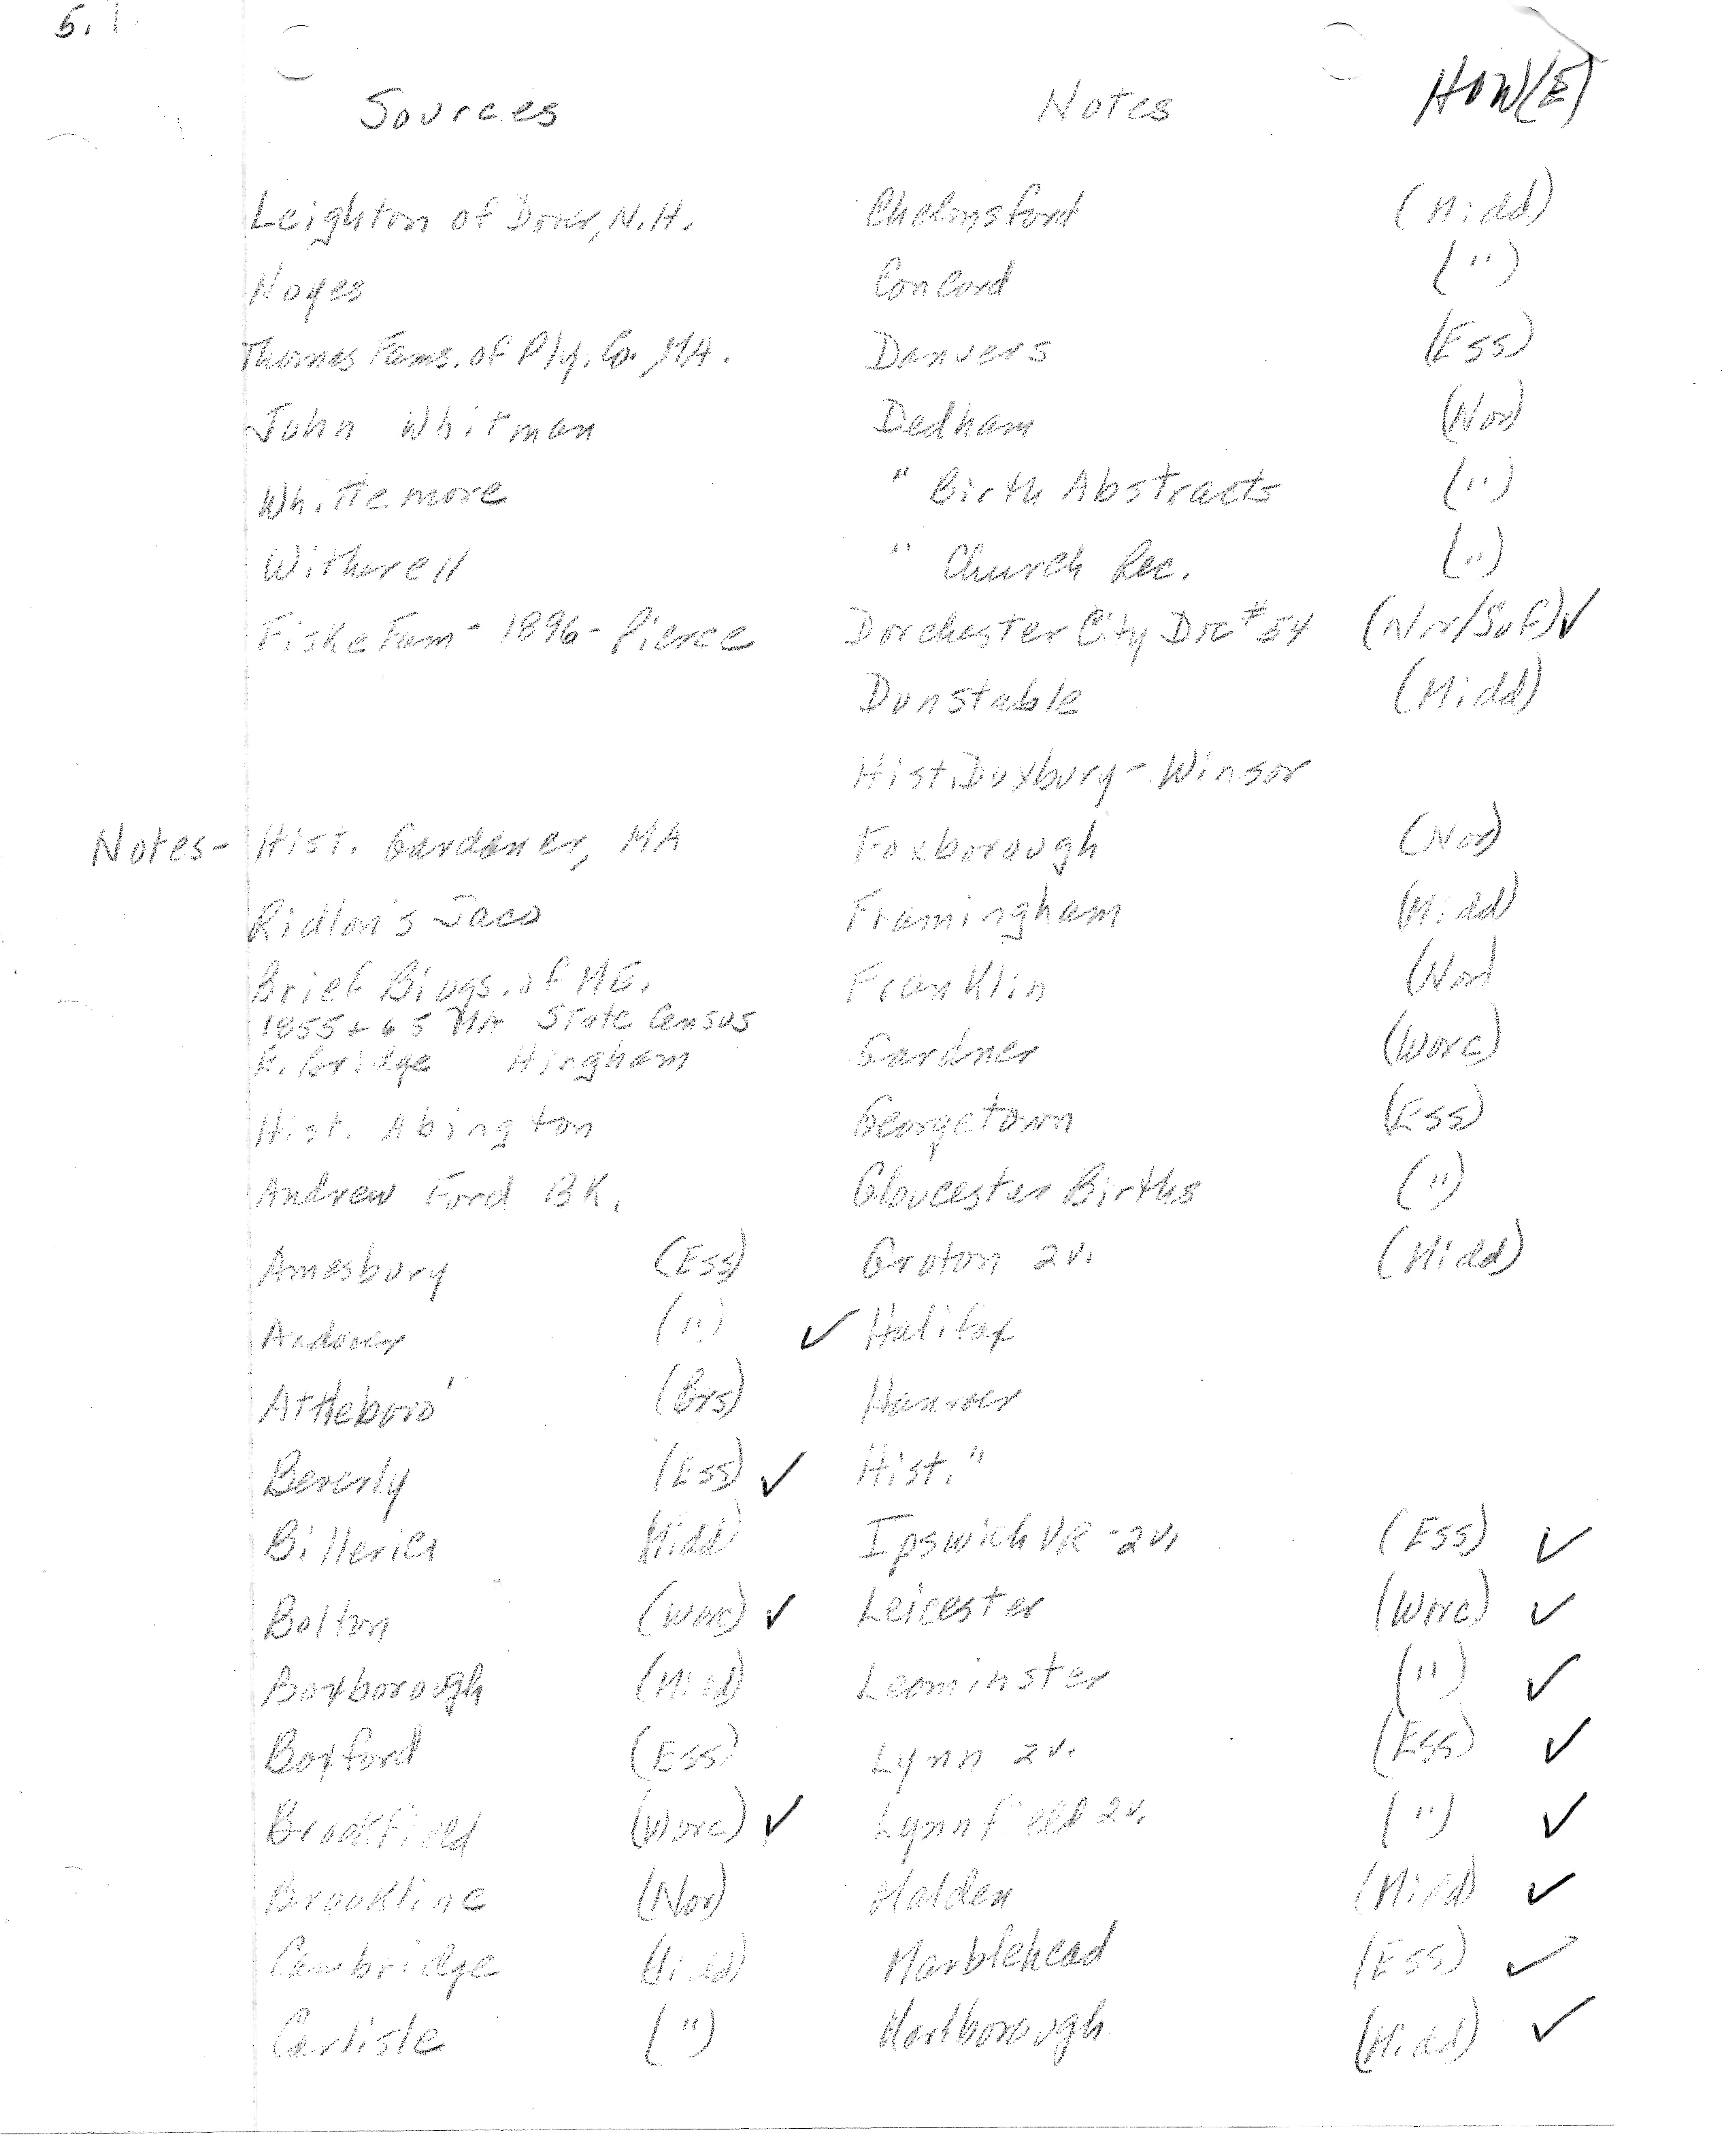 5.
Sources Notes HOW(E)
Leighton of Dover, N.H. Chelmsford (Midd)
Noyes Concord (")
Thomas Fams. of Ply. Co., MA. Danvers (Ess)
John Whitman Dedham (Nor)
Whittemore " Birth Abstracts (")
Witherell " Church Rec. (")
Fiske Fam - 1896 - Pierce Dorchester City Doc # 54 (Nor/Suf) ✓
Dunstable (Midd)
Hist. Duxbury - Winsor
Notes - Hist. Gardener, MA Foxborough (Nor)
Ridlon's Saco Framingham (Midd)
Brief Biogs. of ME. Franklin (Nor)
1855 + 65 MA State Census
E. Bridge Hingham Gardner (Worc)
Hist. Abington Georgetown (Ess)
Andrew Ford BK. Gloucester Births (")
Amesbury (Ess) Groton 2v. (Midd)
Andover (") ✓ Halifax
Attleboro' (Brs) Hanover
Beverly (Ess) ✓ Hist. "
Billerica (Midd) Ipswich VR - 2v. (Ess) ✓
Bolton (Worc) ✓ Leicester (Worc) ✓
Boxborough (Midd) Leominster (") ✓
Boxford (Ess) Lynn 2v. (Ess) ✓
Brookfield (Worc) ✓ Lynnfield 2v. (") ✓
Brookline (Nor) (Midd) ✓
Cambridge (Midd) Marblehead (Ess) ✓
Carlisle (") Marlborough (Midd) ✓